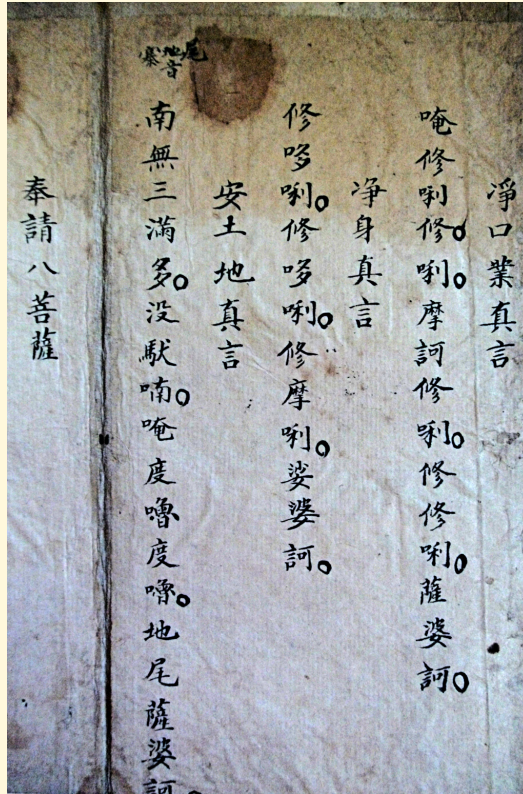 淨口業真言
唵修唎修。唎。摩訶修唎。修修唎。薩婆訶。
净身真言
修哆唎。修哆唎。修摩唎。娑婆訶。
安土地真言
尾地音
南無三滿多。没馱喃。唵度嚕度嚕。地尾薩婆訶。
奉請八菩薩